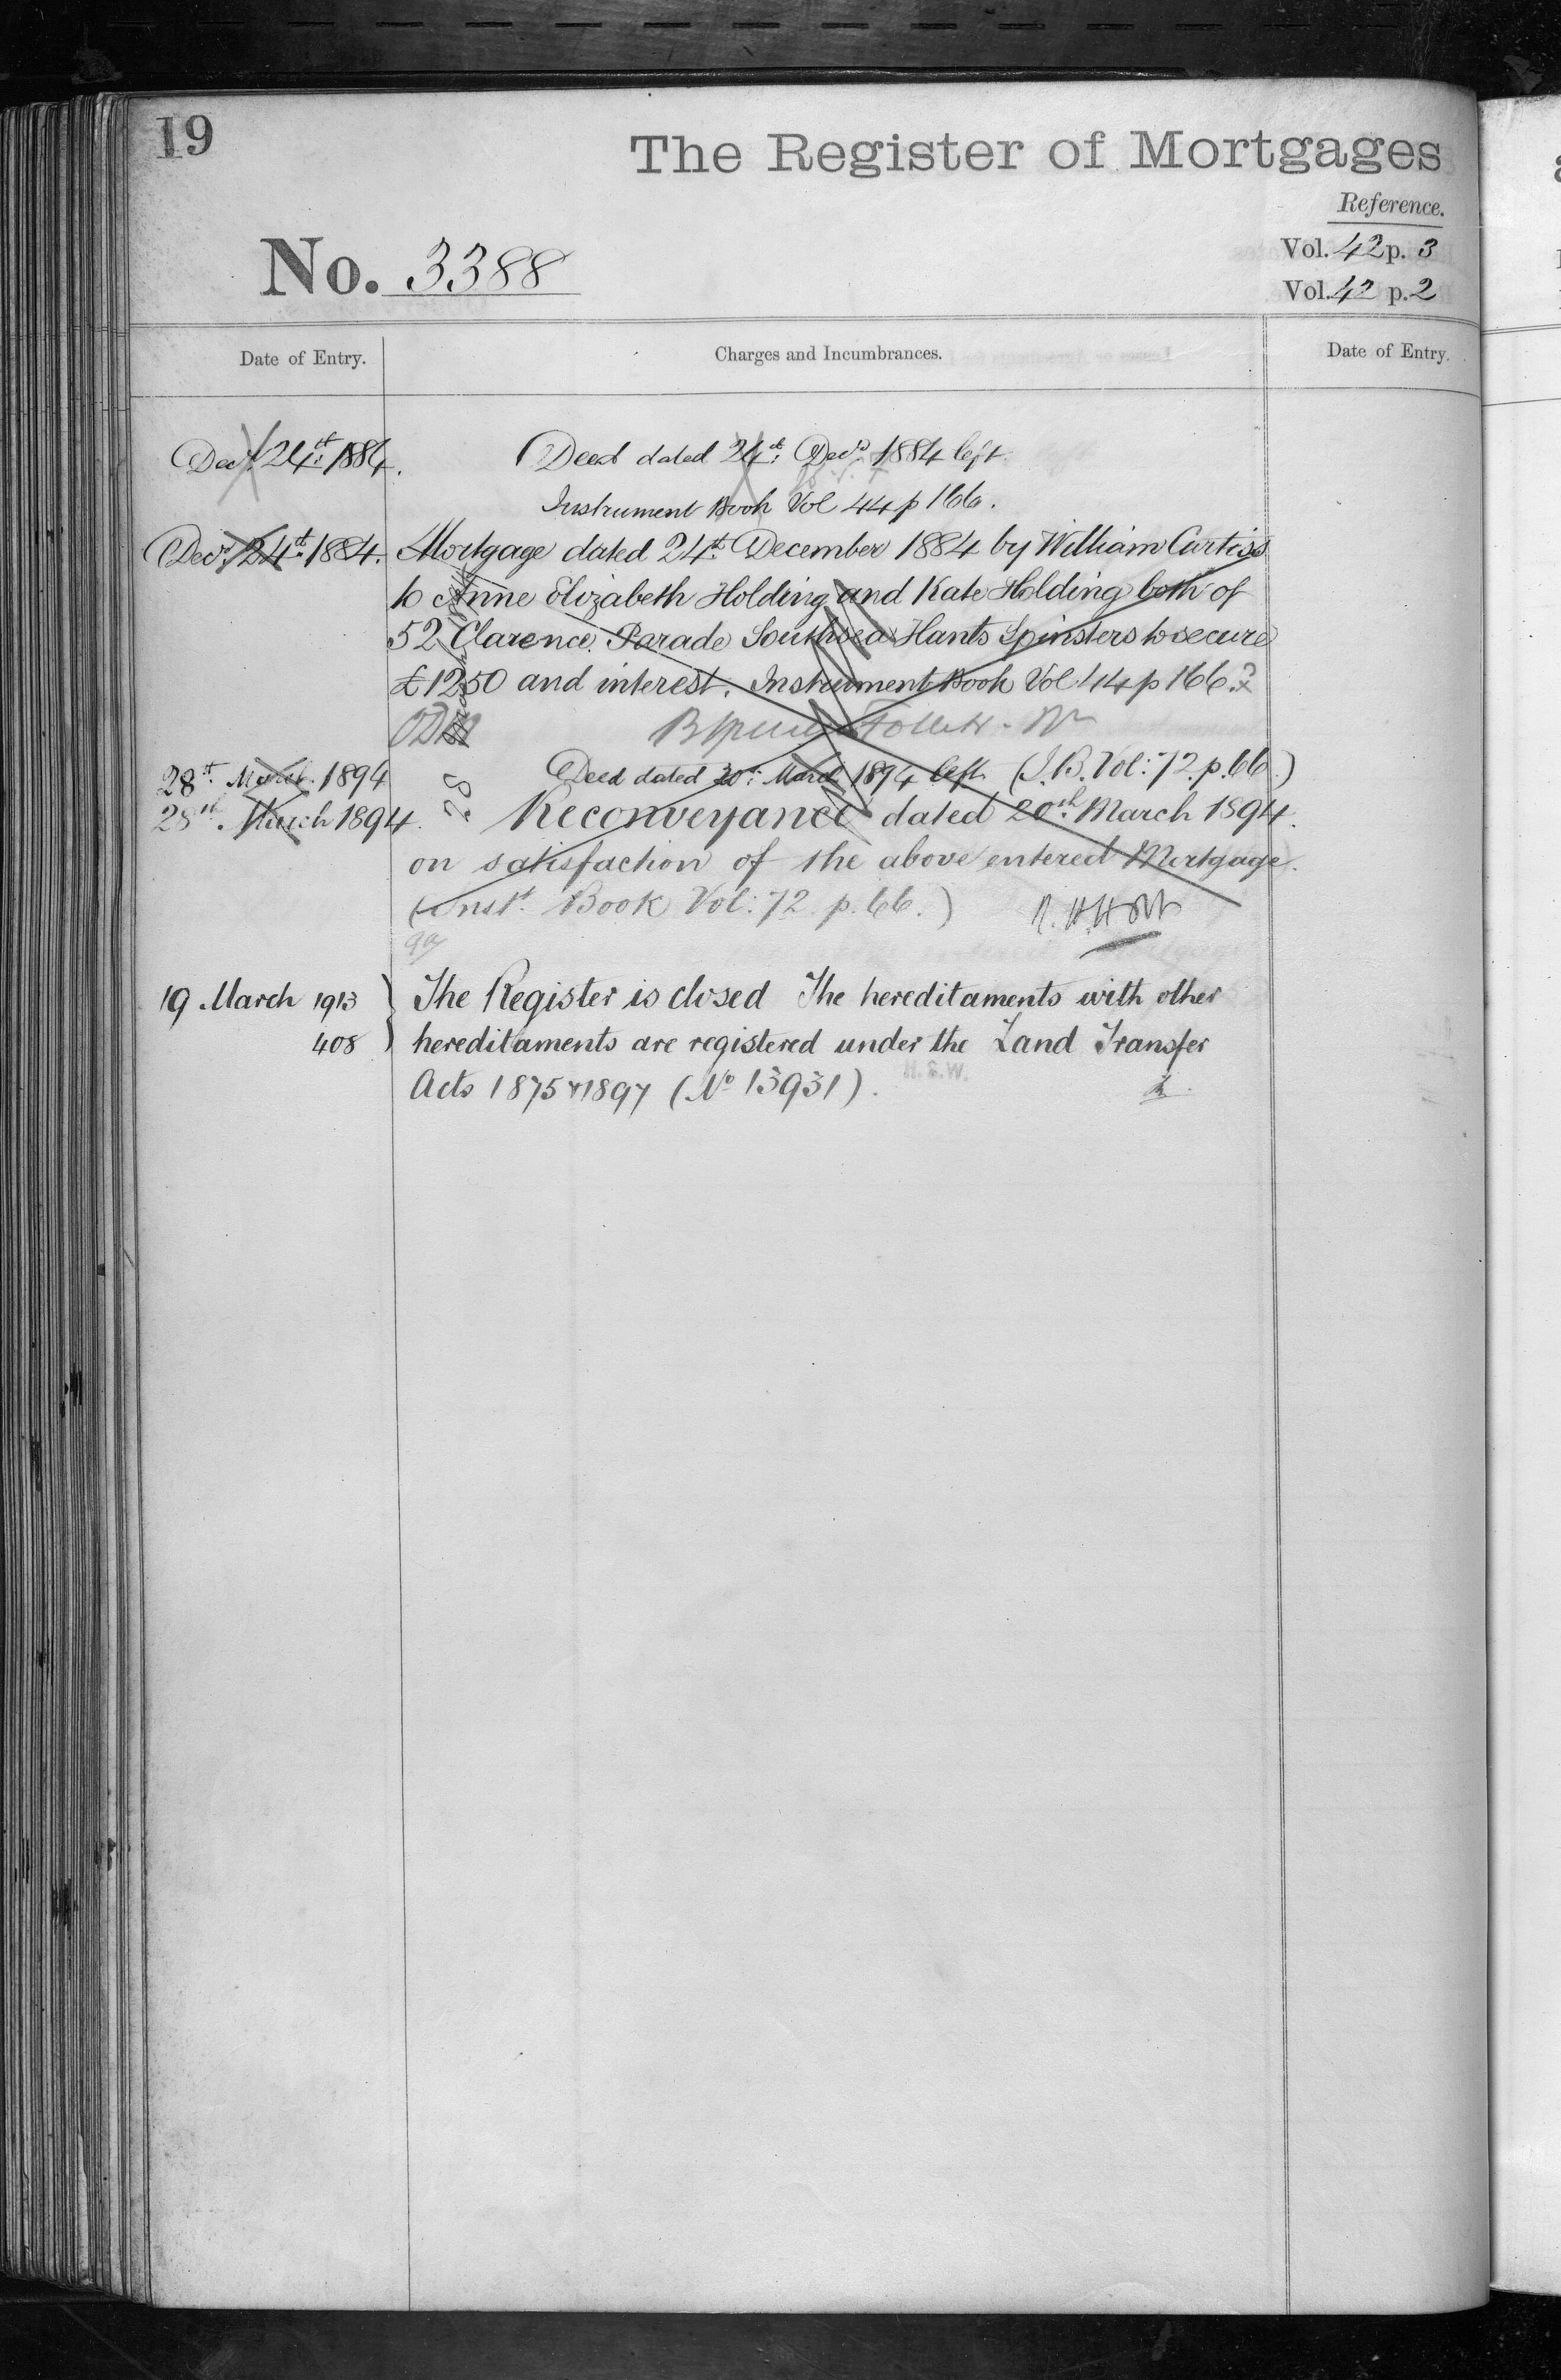 19
The Register of Mortgages
Reference.
Vol. 42 p. 3
No. 3388
Vol. 42 p. 2
Date of Entry.
Charges and Incumbrances.
Date of Entry.
Decr. 24th 1884.
Deed dated 24th Decr 1884 left.
Instrument Book Vol 44 p 166.
Decr. 24th 1884.
Mortgage dated 24th December 1884 by William Curtiss
to Anne Elizabeth Holding and Kate Holding both of
52 Clarence Parade Southsea Hants Spinsters to secure
£1250 and interest. Instrument Book Vol 44 p 166.
28th March 1894
Deed dated 20th March 1894 left (I.B. Vol: 72. p. 66.)
28th March 1894.
Reconveyance dated 20th March 1894.
on satisfaction of the above entered Mortgage.
(Inst. Book Vol: 72 p. 66.)
19 March 1913
The Register is closed The hereditaments with other
408
hereditaments are registered under the Land Transfer
Acts 1875 & 1897 (No 13931).
H.S.W.